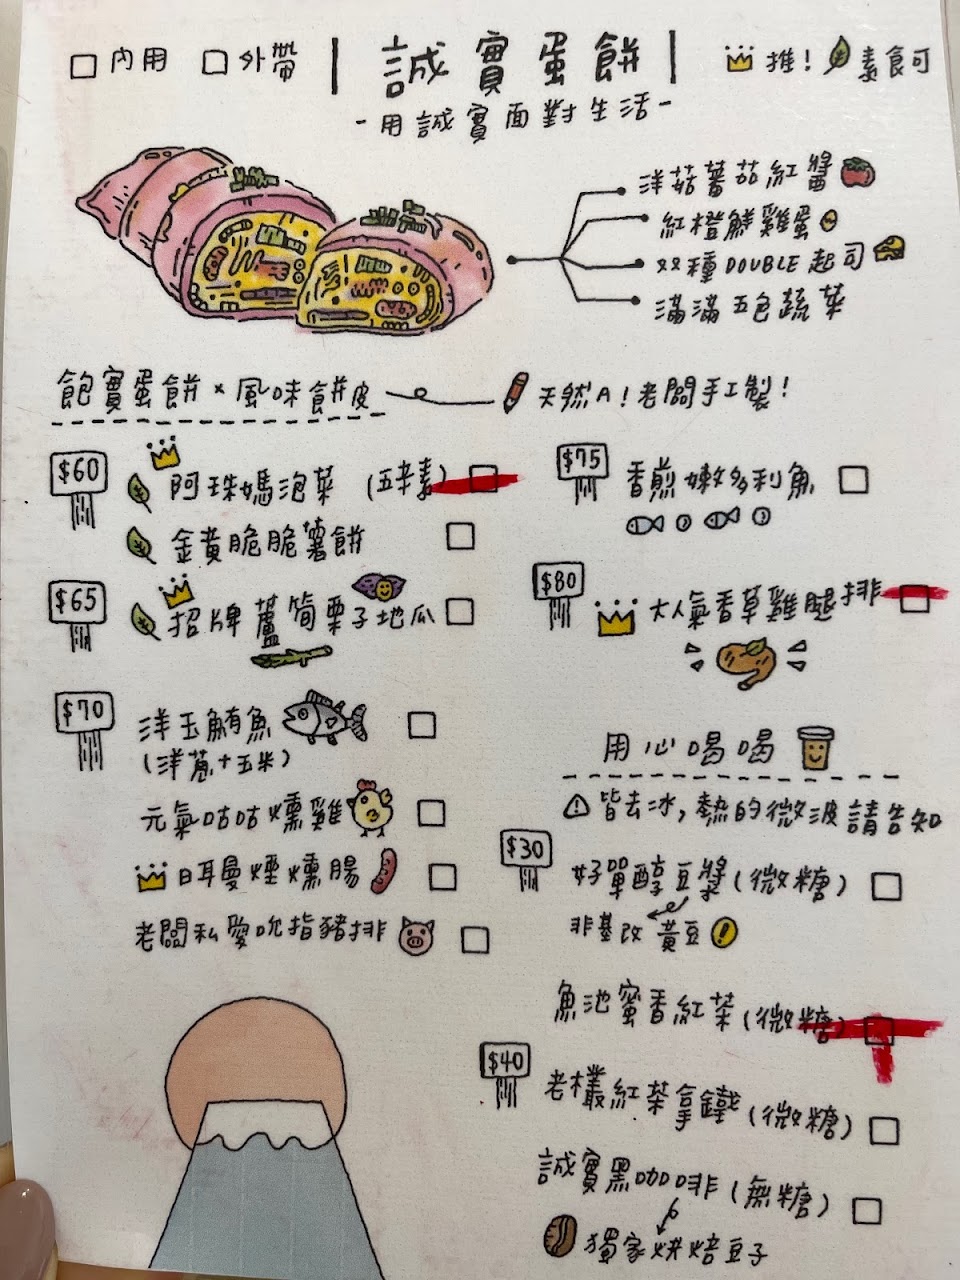 □ 內用 □ 外帶 | 誠實蛋餅 | 推! 素食可
-用誠實面對生活-
洋菇蕃茄紅醬
紅橙鮮雞蛋
双種DOUBLE起司
滿滿五色蔬菜
飽實蛋餅×風味餅皮
天然A!老闆手工製!
$60
阿珠媽泡菜 (五辛素) □
金黃脆脆薯餅 □
$65
招牌蘆筍栗子地瓜 □
$70
洋玉鮪魚 □
(洋蔥+玉米)
元氣咕咕燻雞 □
日耳曼煙燻腸 □
老闆私愛吮指豬排 □
$75
香煎嫩多利魚 □
$80
大人氣香草雞腿排 □
用心喝喝
皆去冰,熱的微波請告知
$30
好單醇豆漿(微糖) □
非基改黃豆
魚池蜜香紅茶(微糖) □
$40
老欉紅茶拿鐵(微糖) □
誠實黑咖啡(無糖) □
獨家烘焙豆子